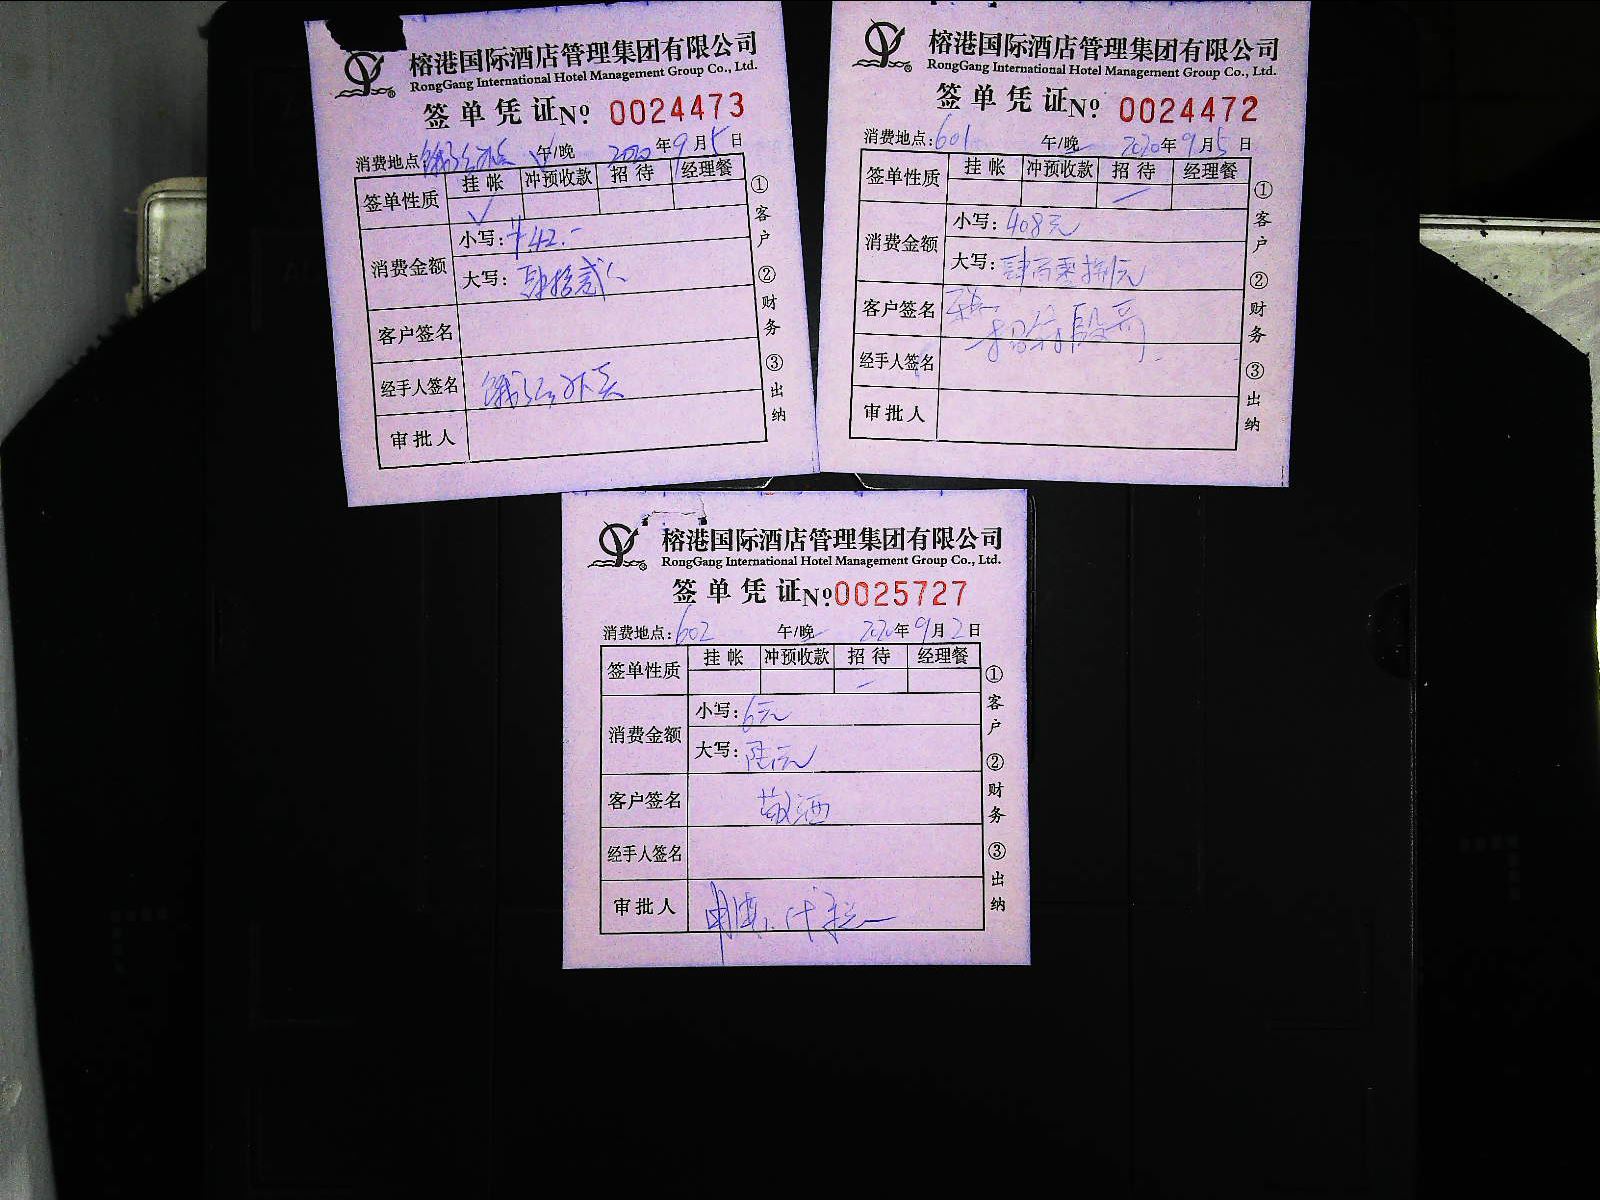 榕港国际酒店管理集团有限公司
RongGang International Hotel Management Group Co., Ltd.
签单凭证 No: 0024473
消费地点: 午/晚 2020年9月5日
签单性质 挂帐 冲预收款 招待 经理餐
✓
消费金额 小写: ¥42.-
大写: 肆拾贰
客户签名
经手人签名
审批人
①客户 ②财务 ③出纳
榕港国际酒店管理集团有限公司
RongGang International Hotel Management Group Co., Ltd.
签单凭证 No: 0024472
消费地点: 601 午/晚 2020年9月5日
签单性质 挂帐 冲预收款 招待 经理餐
消费金额 小写: 408元
大写: 肆百零捌元
客户签名
经手人签名
审批人
①客户 ②财务 ③出纳
榕港国际酒店管理集团有限公司
RongGang International Hotel Management Group Co., Ltd.
签单凭证 No: 0025727
消费地点: 602 午/晚 2020年9月2日
签单性质 挂帐 冲预收款 招待 经理餐
消费金额 小写: 6元
大写: 陆元
客户签名 敬酒
经手人签名
审批人
①客户 ②财务 ③出纳